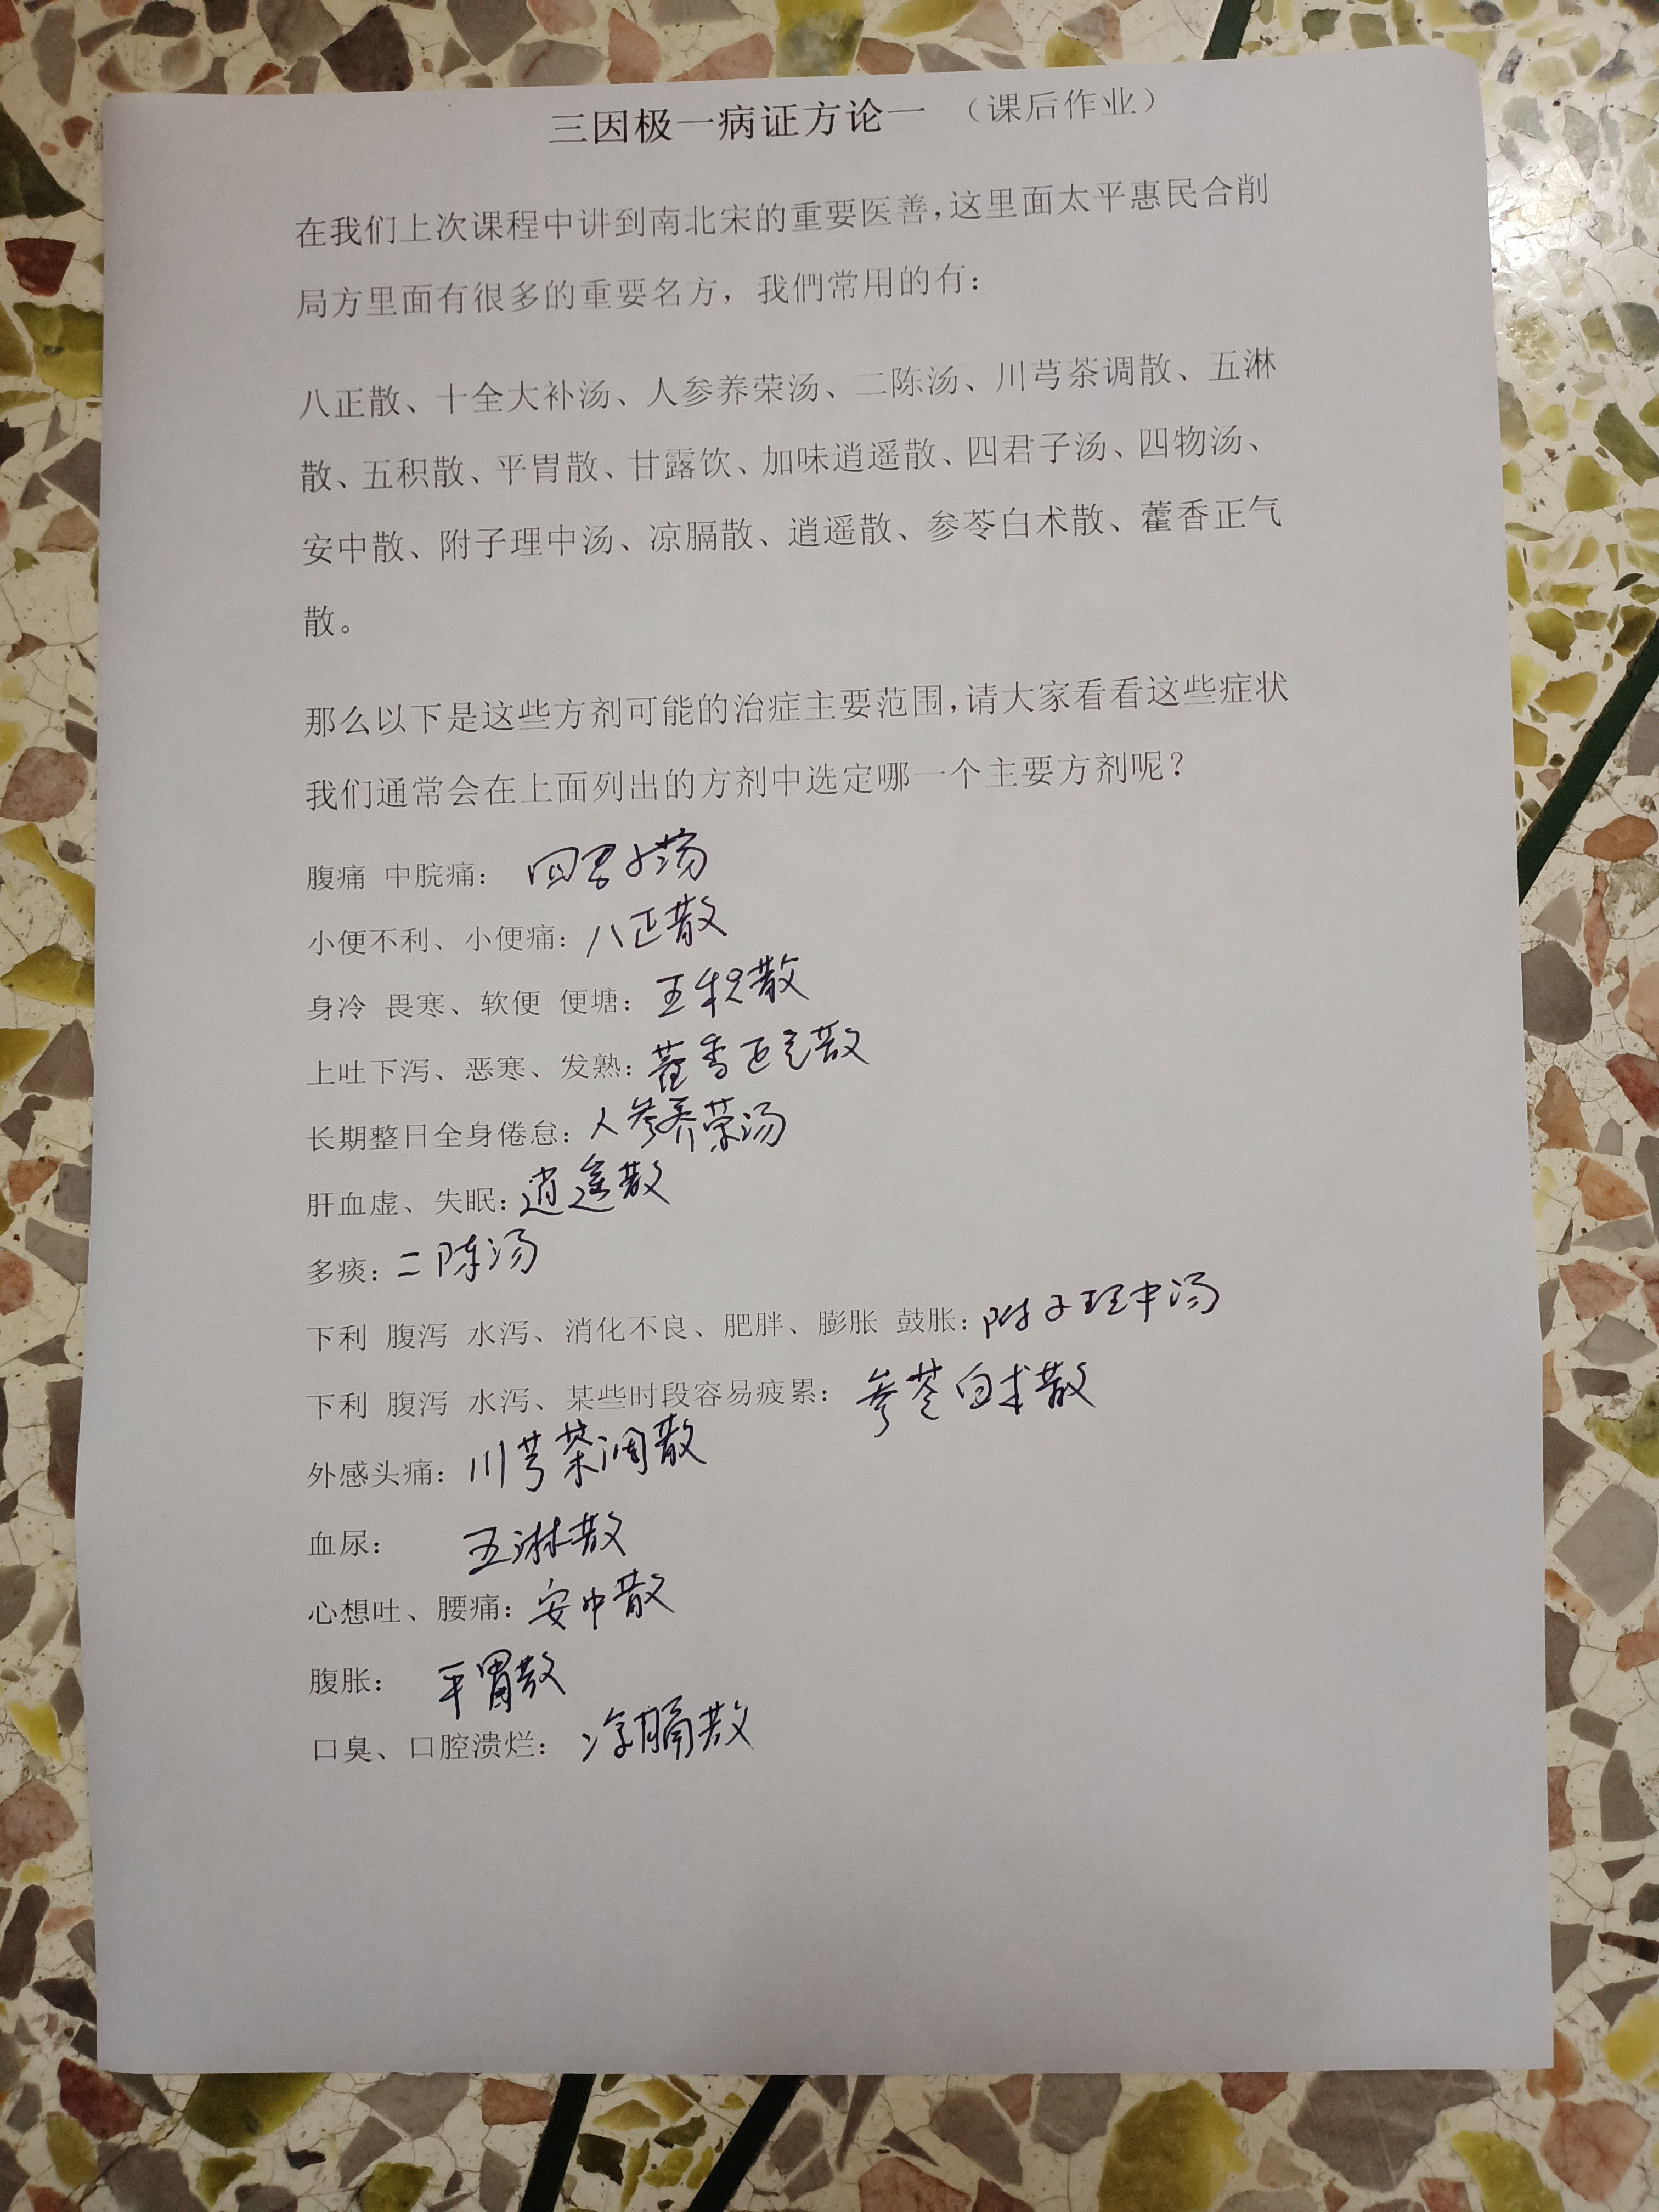 三因极一病证方论一 （课后作业）
在我们上次课程中讲到南北宋的重要医善,这里面太平惠民合削
局方里面有很多的重要名方，我們常用的有：
八正散、十全大补汤、人参养荣汤、二陈汤、川芎茶调散、五淋
散、五积散、平胃散、甘露饮、加味逍遥散、四君子汤、四物汤、
安中散、附子理中汤、凉膈散、逍遥散、参苓白术散、藿香正气
散。
那么以下是这些方剂可能的治症主要范围,请大家看看这些症状
我们通常会在上面列出的方剂中选定哪一个主要方剂呢？
腹痛 中脘痛： 四君子汤
小便不利、小便痛：八正散
身冷 畏寒、软便 便塘：五积散
上吐下泻、恶寒、发熟：藿香正气散
长期整日全身倦怠：人参养荣汤
肝血虚、失眠：逍遥散
多痰：二陈汤
下利 腹泻 水泻、消化不良、肥胖、膨胀 鼓胀：附子理中汤
下利 腹泻 水泻、某些时段容易疲累：参苓白术散
外感头痛：川芎茶调散
血尿： 五淋散
心想吐、腰痛：安中散
腹胀： 平胃散
口臭、口腔溃烂：凉膈散